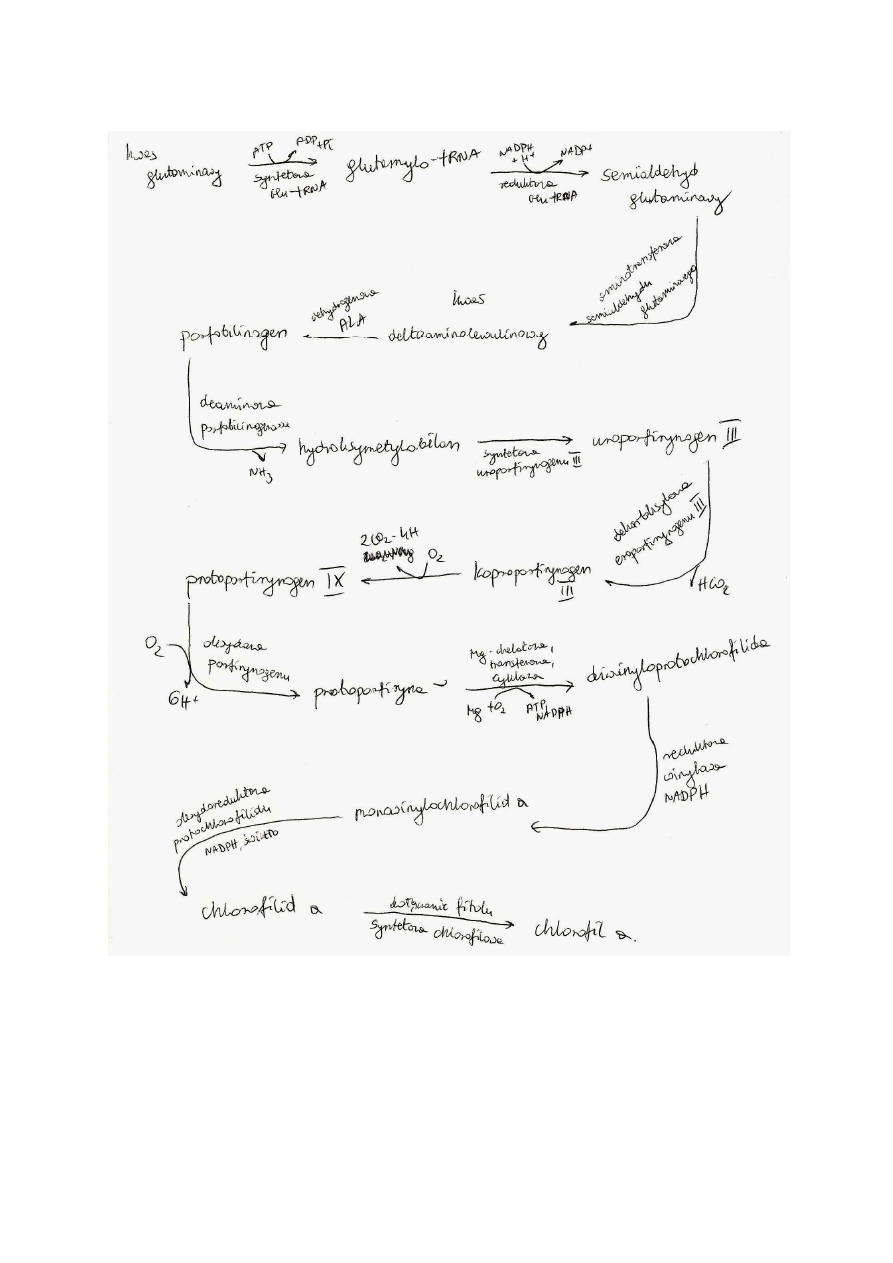 kwas
glutaminowy
ATP
ADP+Pi
syntetaza
Glu-tRNA
glutamylo-tRNA
NADPH
+ H+
NADP+
reduktaza
Glu-tRNA
semialdehyd
glutaminowy
aminotransferaza
semialdehydu
glutaminowego
kwas
deltaaminolewulinowy
dehydrogenaza
ALA
porfobilinogen
deaminaza
porfobilinogenowa
NH3
hydroksymetylobilan
syntetaza
uroporfirynogenu III
uroporfirynogen III
dekarboksylaza
uroporfirynogenu III
HCO2
koproporfirynogen
III
O2
2CO2-4H
protoporfirynogen IX
O2
oksydaza
porfirynogenu
6H+
protoporfiryna
Mg-chelataza,
transferaza,
cyklaza
Mg +O2
ATP
NADPH
diwinyloprotochlorofilida
reduktaza
winylowa
NADPH
monowinylochlorofilid a
oksydoreduktaza
protochlorofilidu
NADPH, światło
chlorofilid a
dołączanie fitolu
syntetaza chlorofilowa
chlorofil a.